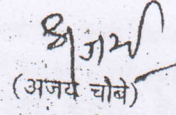 (अजय चौबे)